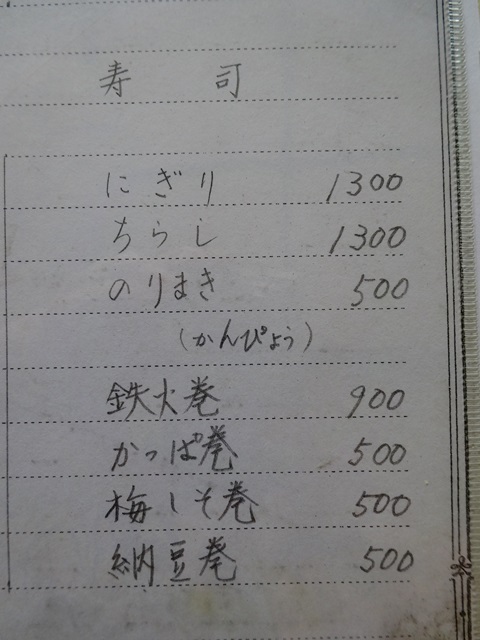 寿司
にぎり 1300
ちらし 1300
のりまき 500
(かんぴょう)
鉄火巻 900
かっぱ巻 500
梅しそ巻 500
納豆巻 500